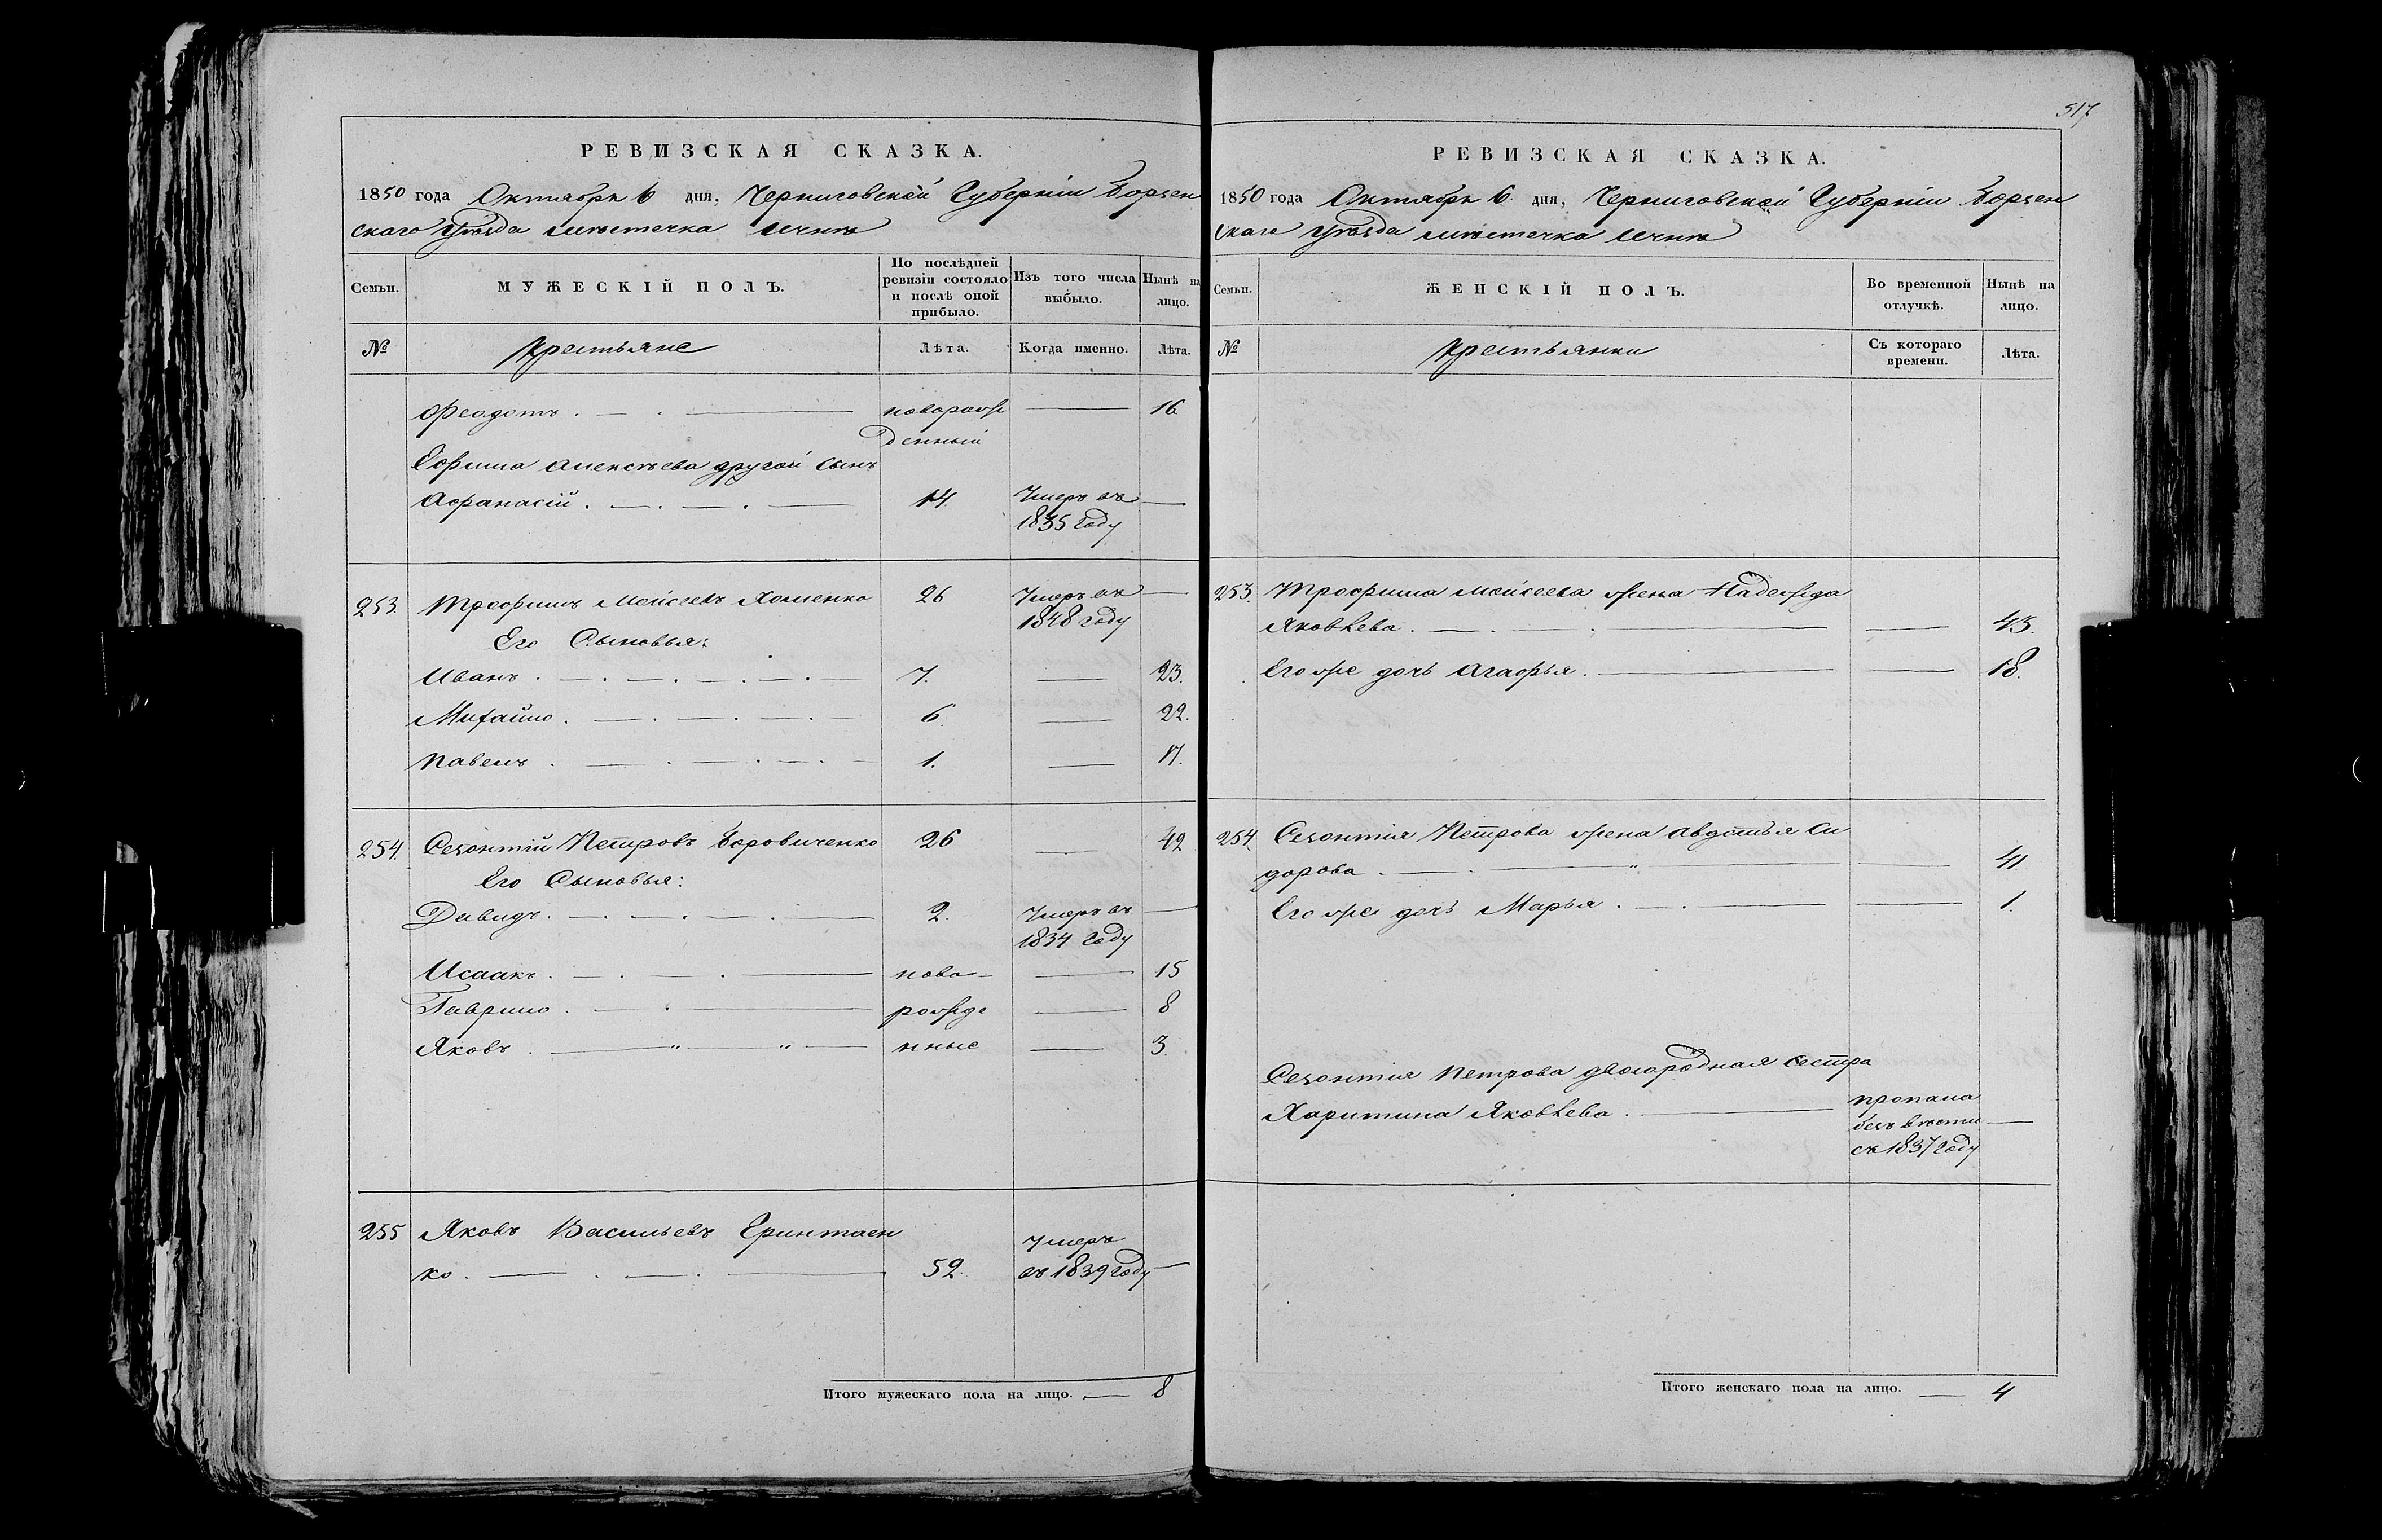 517
РЕВИЗСКАЯ СКАЗКА.
1850 года Октября 6 дня, Черниговской Губерніи Борзен
скаго Уѣзда мѣстечка Ични
Семьи.
МУЖЕСКІЙ ПОЛЪ.
По послѣдней ревизіи состояло и послѣ оной прибыло.
Изъ того числа выбыло.
Нынѣ на лицо.
№
Крестьяне
Лѣта.
Когда именно.
Лѣта.
Феодотъ . — . — новорож — 16
денный
Ефима Алексѣева другой сынъ
Афанасій . — . — . — 14. Умеръ въ —
1835 году
253. Трофимъ Мойсеевъ Хоменко 26 Умеръ въ —
1848 году
Его Сыновья:
Иванъ . — . — . — . — . 7. — 23.
Михайло . — . — . — . 6. — 22.
Павелъ . — . — . — . — 1. — 17.
254. Созонтій Петровъ Боровиченко 26 — 42
Его Сыновья:
Давидъ . — . — . — . — 2. Умеръ въ —
1834 году
Исаакъ . — . — . — ново- — 15
Гаврило . — . — рожде — 8
Яковъ . — " — " — нные — 3.
255 Яковъ Васильевъ Еринтаен
ко . — . — . — 52. Умеръ
въ 1839 году —
Итого мужескаго пола на лицо. — 8
РЕВИЗСКАЯ СКАЗКА.
1850 года Октября 6 дня, Черниговской Губерніи Борзен
скаго Уѣзда мѣстечка Ични
Семьи.
ЖЕНСКІЙ ПОЛЪ.
Во временной отлучкѣ.
Нынѣ на лицо.
№
Крестьянки
Съ котораго времени.
Лѣта.
253. Трофима Мойсеева жена Надежда
Яковлева . — . — . — — 43.
Его же дочь Агафья . — — 18.
254. Созонтія Петрова жена Авдотья Си
дорова . — . — " — — 41.
Его же дочь Марья . — . — — 1.
Созонтія Петрова двоюродная сестра
Харитина Яковлева . — пропала
безъ вѣсти —
съ 1837 году
Итого женскаго пола на лицо. — 4